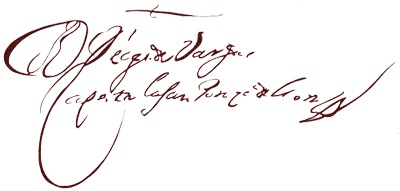 D Diego de Vargas
Çapata Luxan Ponze de Leon